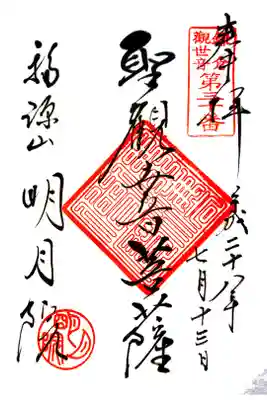 奉拝
平成二十八年
七月十三日
鎌倉
観世音
第三十番
聖観世音菩薩
福源山
明月院